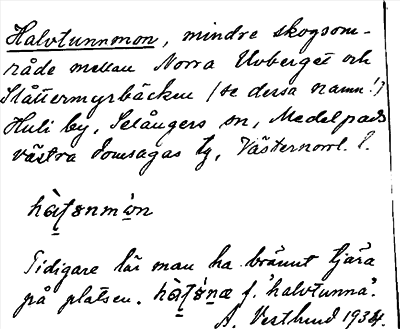 Halvtunnmon, mindre skogsom-
råde mellan Norra Uvberget och
Slåttermyrbäcken (se dessa namn!)
Huli by, Selångers sn, Medelpads
västra domsagas tg, Västernorrl. l.
Tidigare lär man ha bränt tjära
på platsen. f. "halvtunna".
A. Vestlund 1934.